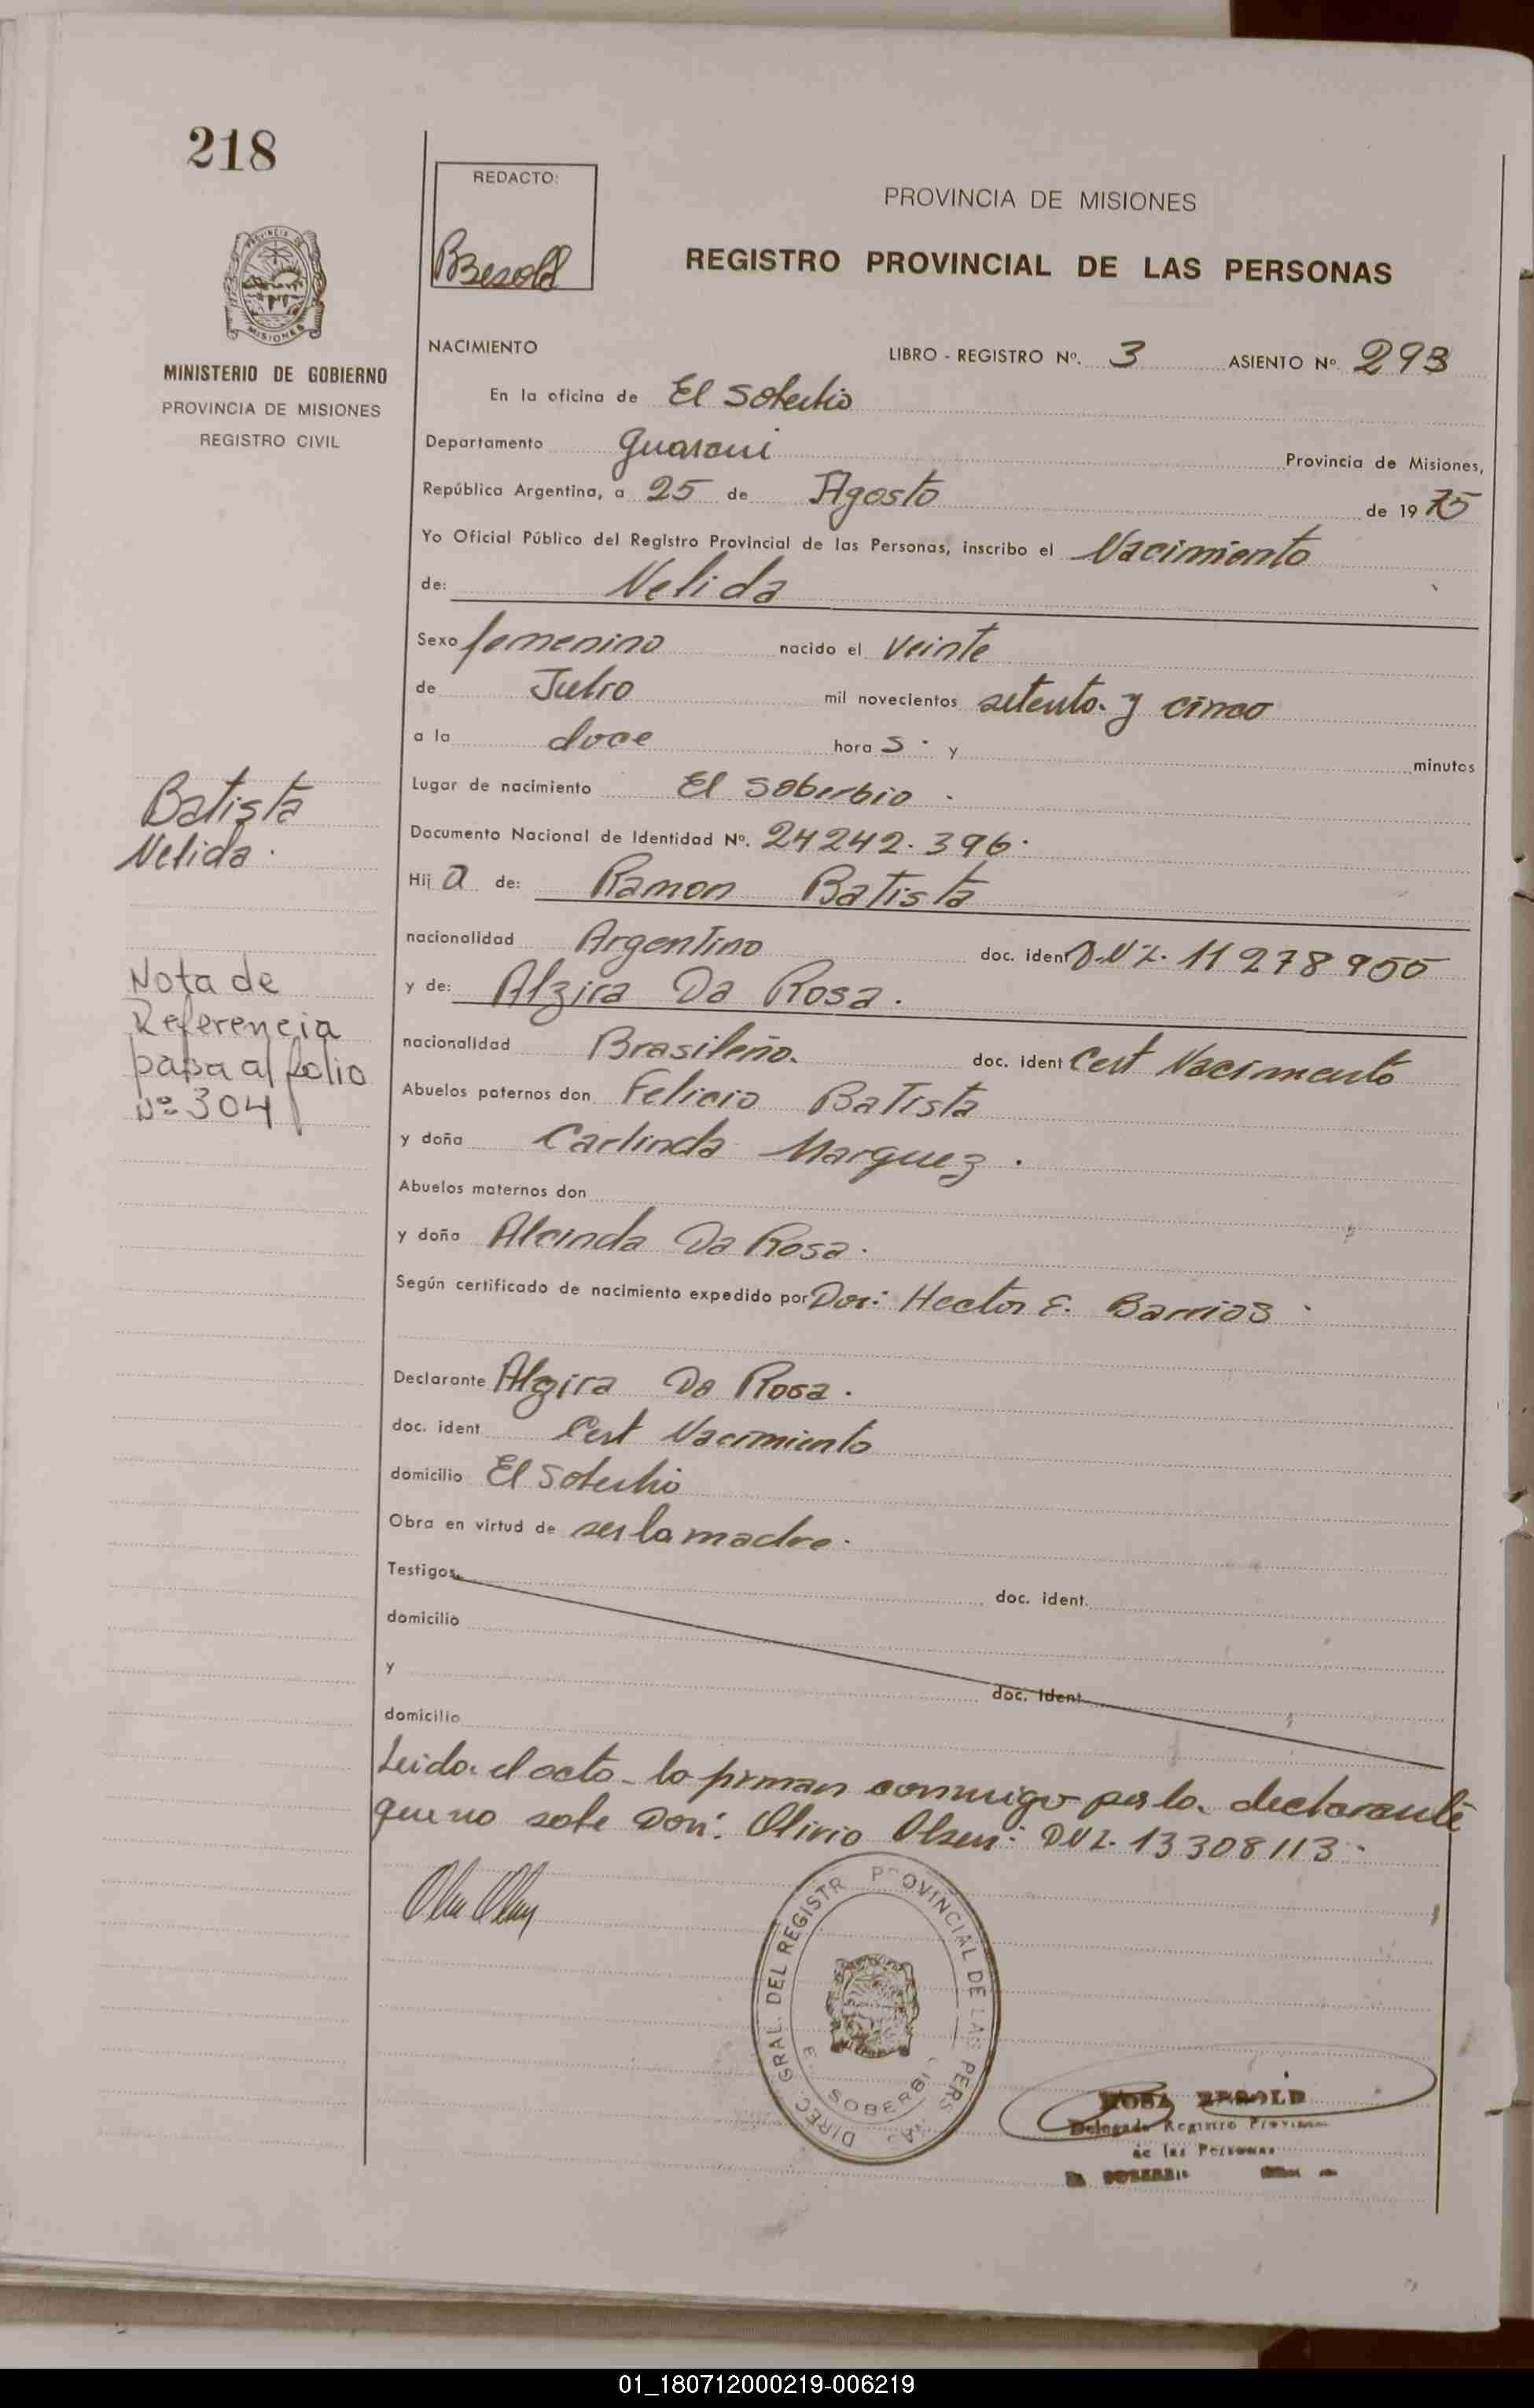 218
REDACTO:
Besold
PROVINCIA DE MISIONES
REGISTRO PROVINCIAL DE LAS PERSONAS
PROVINCIA DE
MISIONES
MINISTERIO DE GOBIERNO
PROVINCIA DE MISIONES
REGISTRO CIVIL
NACIMIENTO
LIBRO - REGISTRO Nº. 3 ASIENTO Nº 293
En la oficina de El Soberbio
Departamento Guarani Provincia de Misiones,
República Argentina, a 25 de Agosto de 1975
Yo Oficial Público del Registro Provincial de las Personas, inscribo el Nacimiento
de: Nelida
Sexo femenino nacido el veinte
de Julio mil novecientos setenta y cinco
a la doce hora s y minutos
Lugar de nacimiento El Soberbio
Documento Nacional de Identidad Nº. 24242.396.
Hij a de: Ramon Batista
nacionalidad Argentino doc. ident D.N.I. 11 278 955
y de: Alzira Da Rosa.
nacionalidad Brasileño. doc. ident Cert Nacimento
Abuelos paternos don Felicio Batista
y doña Carlinda Marquez.
Abuelos maternos don
y doña Alcinda Da Rosa.
Según certificado de nacimiento expedido por Don: Hector E. Barrios
Declarante Alzira Da Rosa.
doc. ident Cert Nacimiento
domicilio El Soberbio
Obra en virtud de ser la madre.
Testigos doc. ident.
domicilio
y doc. ident
domicilio
Leido el acto lo firman conmigo por la declarante
que no sabe Don: Olivio Olsen: DNI. 13308113.
Batista
Nelida.
Nota de
Referencia
papa al folio
Nº 304
DIREC. GRAL. DEL REGISTR PROVINCIAL DE LAS PERS NAS
E SOBERBI
ROSA BESOLD
Delegada Registro Provincial
de las Personas
EL SOBERBIO
01_180712000219-006219